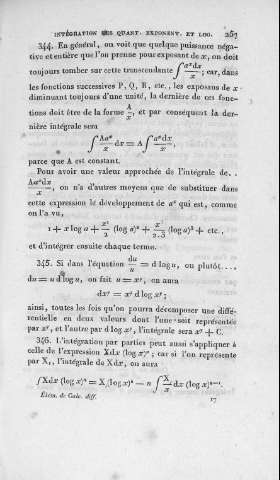 INTÉGRATION DES QUANT. EXPONENT. ET LOG. 257
344. En général, on voit que quelque puissance néga-
tive et entière que l'on prenne pour exposant de x, on doit
toujours tomber sur cette transcendante ∫ aˣdx/x ; car, dans
les fonctions successives P, Q, R, etc., les exposans de x
diminuant toujours d'une unité, la dernière de ces fonc-
tions doit être de la forme A/x, et par conséquent la der-
nière intégrale sera
∫ Aaˣ/x dx = A ∫ aˣdx/x,
parce que A est constant.
Pour avoir une valeur approchée de l'intégrale de..
Aaˣdx/x, on n'a d'autres moyens que de substituer dans
cette expression le développement de aˣ qui est, comme
on l'a vu,
1 + x log a + x²/2 (log a)² + x³/2.3 (log a)³ + etc.,
et d'intégrer ensuite chaque terme.
345. Si dans l'équation du/u = d log u, ou plutôt...
du = u d log u, on fait u = xʸ, on aura
dxʸ = xʸ d log xʸ ;
ainsi, toutes les fois qu'on pourra décomposer une diffé-
rentielle en deux valeurs dont l'une soit représentée
par xʸ, et l'autre par d log xʸ, l'intégrale sera xʸ + C.
346. L'intégration par parties peut aussi s'appliquer à
celle de l'expression Xdx (log x)ⁿ ; car si l'on représente
par X₁ l'intégrale de Xdx, on aura
∫Xdx (log x)ⁿ = X₁(log x)ⁿ — n ∫ X₁/x dx (log x)ⁿ⁻¹.
Élém. de Calc. diff.
17